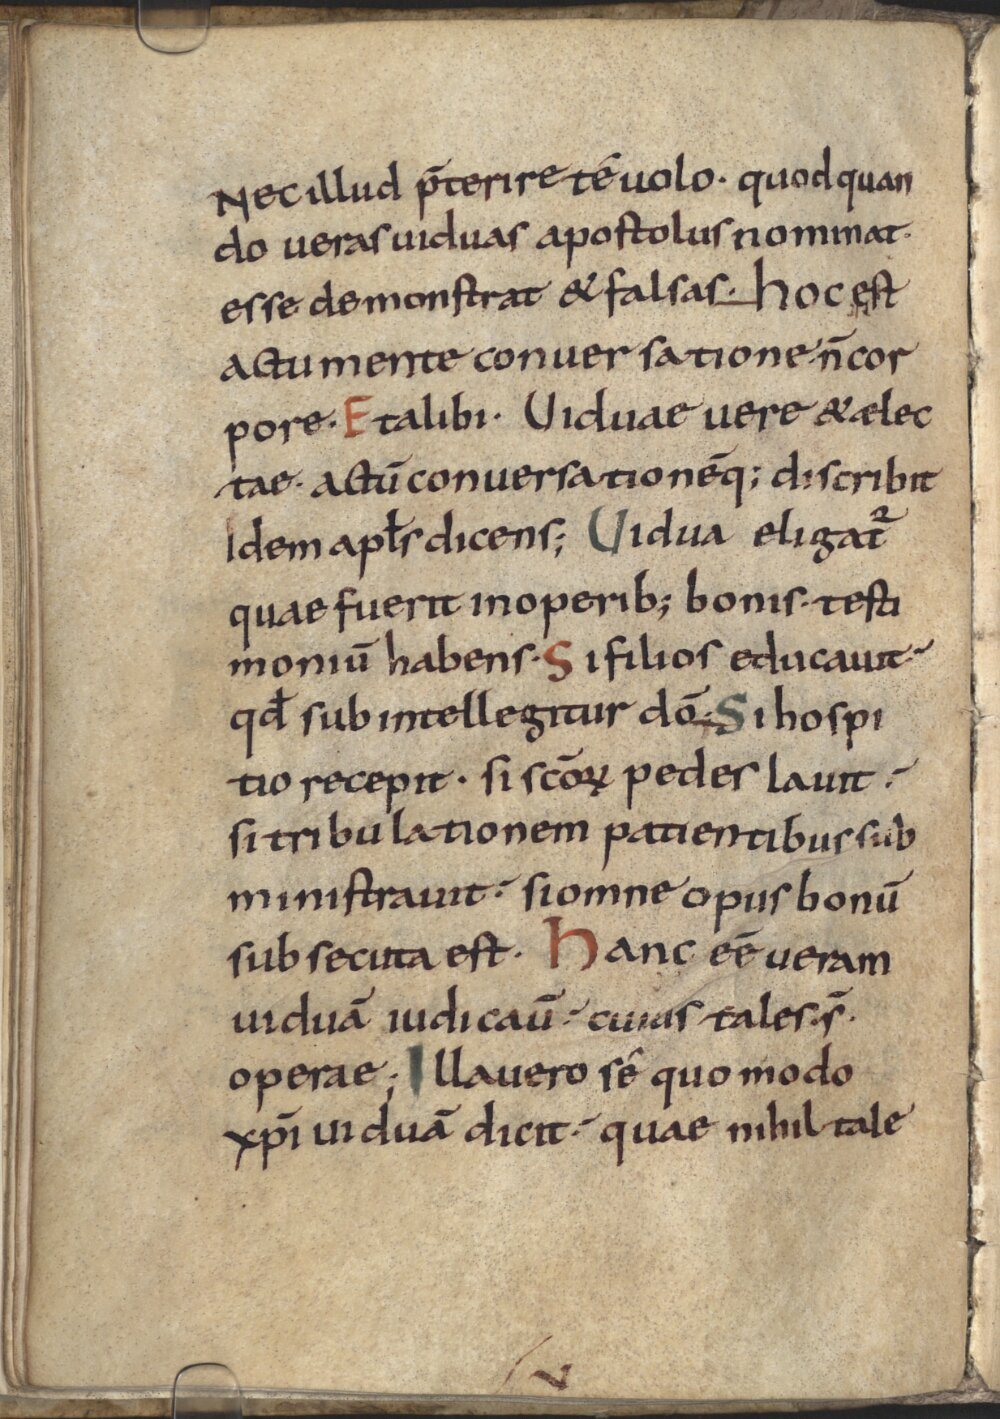 Nec illud p̄terire tē uolo· quod quan
do ueras uiduas apostolus nominat·
esse demonstrat & falsas· hoc est
actu mente conuersatione n̄ cor
pore· Et alibi· Uiduae uere & aelec
tae· actū conuersationēq; discribit
Idem apłs dicens; Uidua eligat᷑
quae fuerit in operib; bonis· testi
moniū habens· Si filios educauit·
qđ sub intellegitur dō· Si hospi
tio recepit· si scōꝝ pedes lauit·
si tribulationem patientibus sub
ministrauit· si omne opus bonū
subsecuta est· Hanc eē ueram
uiduā iudicaū· cuius tales s̄·
operae; Illa uero sē quomodo
xp̄i uiduā dicit· quae nihil tale
v